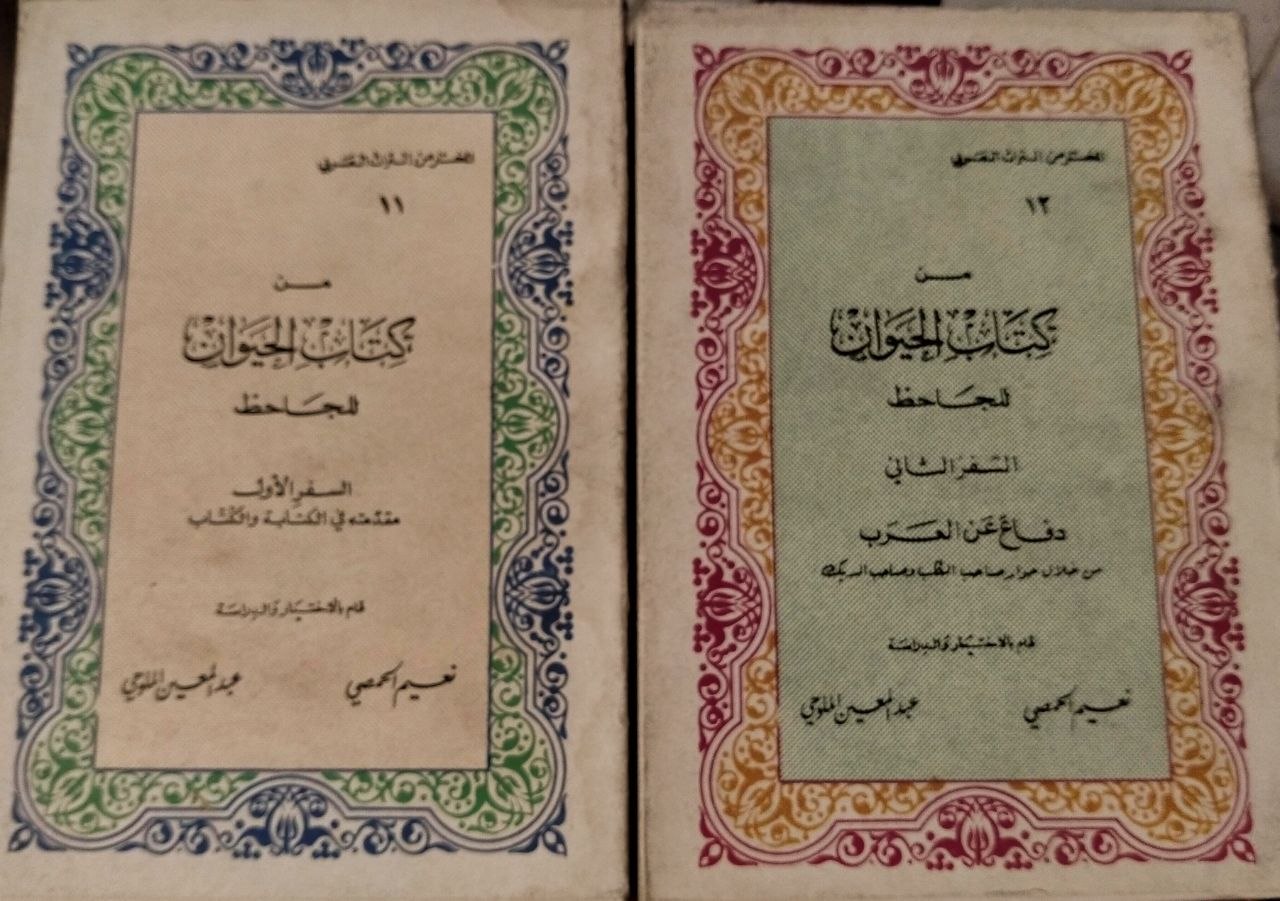 المختار من التراث العربي
١١
من
كتاب الحيوان
للجاحظ
السفر الأول
مقدمته في الكتابة والكتاب
قام بالاختيار والدراسة
نعيم الحمصي عبد المعين الملوحي
المختار من التراث العربي
١٢
من
كتاب الحيوان
للجاحظ
السفر الثاني
دفاع عن العرب
من خلال حوار صاحب الكلب وصاحب الديك
قام بالاختيار والدراسة
نعيم الحمصي عبد المعين الملوحي